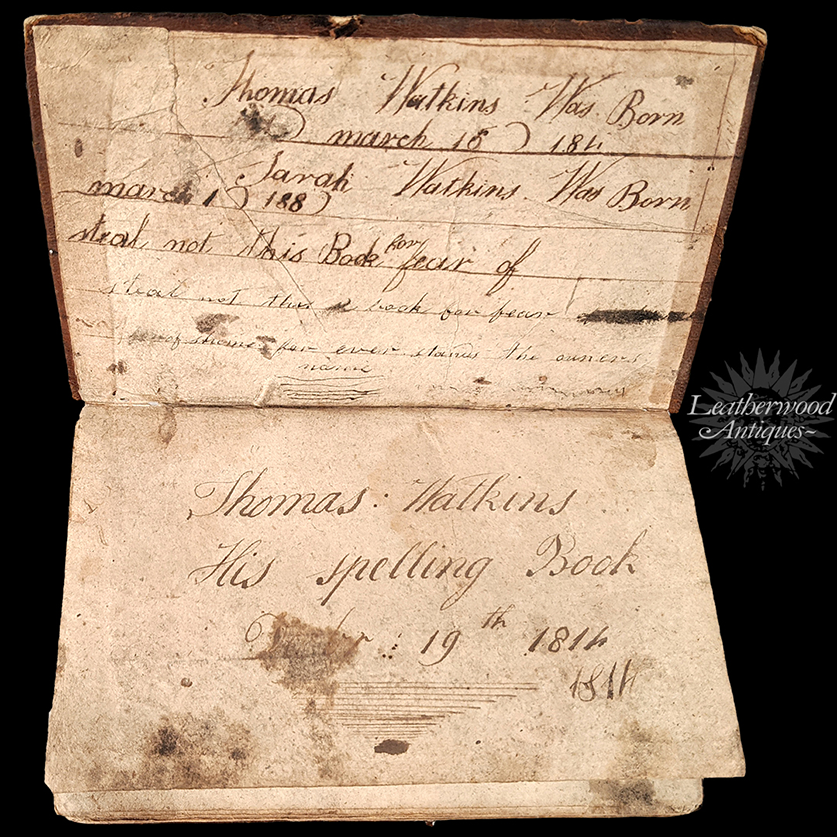 Thomas Watkins Was Born
march 18 184
Sarah Watkins Was Born
march 1 188
steal not this Book for fear of
steal not this book for fear
of shame for ever stands the owners
name
Thomas: Watkins
His spelling Book
19th 1814
1814
Leatherwood
Antiques~